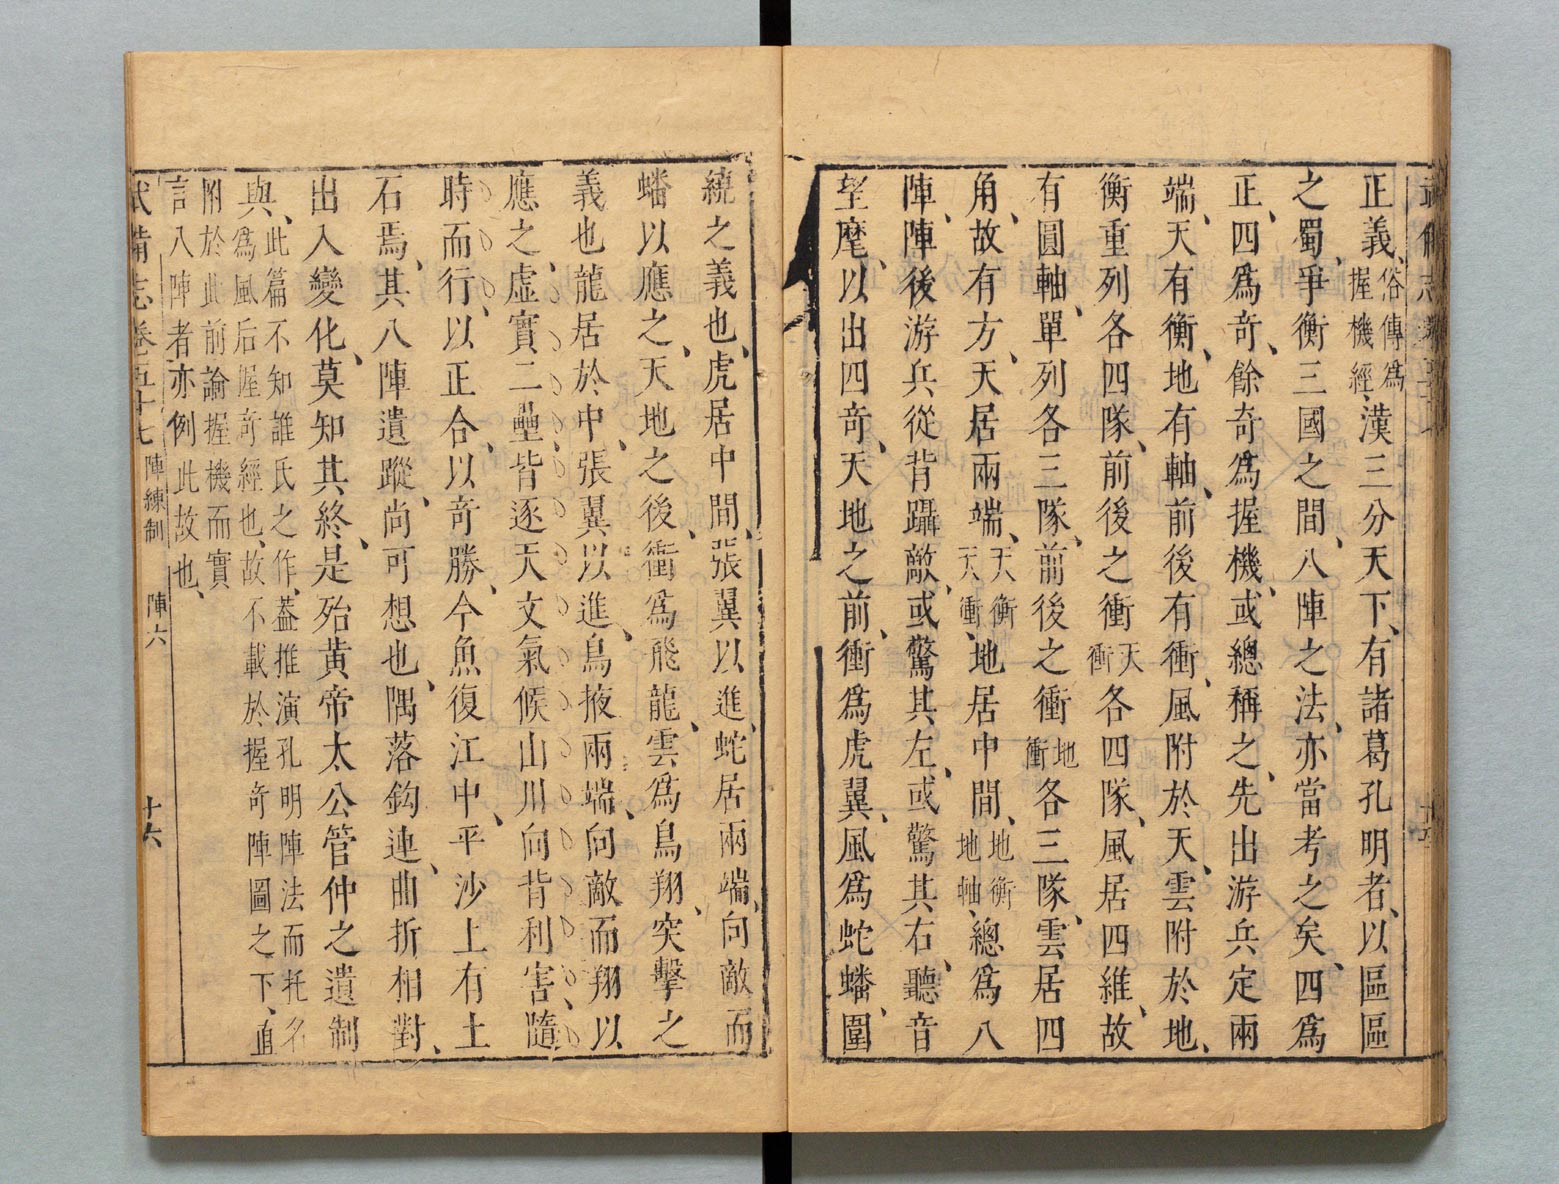 正義俗傳爲握機經、漢三分天下、有諸葛孔明者、以區區
之蜀、爭衡三國之間、八陣之法、亦當考之矣、四爲
正、四爲奇、餘奇爲握機、或總稱之、先出游兵定兩
端、天有衡、地有軸、前後有衝、風附於天、雲附於地、
衡重列各四隊、前後之衝天衝各四隊、風居四維、故
有圓軸、單列各三隊、前後之衝地衝各三隊、雲居四
角、故有方、天居兩端、天衡天衝、地居中間、地衡地軸、總爲八
陣、陣後游兵從背躡敵、或驚其左、或驚其右、聽音
望麾、以出四奇、天地之前、衝爲虎翼、風爲蛇蟠、圍
繞之義也、虎居中間、張翼以進、蛇居兩端、向敵而
蟠以應之、天地之後、衝爲飛龍、雲爲鳥翔、突擊之
義也龍居於中、張翼以進、鳥掖兩端、向敵而翔以
應之、虛實二壘、皆逐天文氣候山川向背利害、隨
時而行、以正合、以奇勝、今魚復江中、平沙上有土
石焉、其八陣遺蹤、尚可想也、隅落鈎連、曲折相對、
出入變化、莫知其終、是殆黃帝太公管仲之遺制
與、此篇不知誰氏之作、葢推演孔明陣法而托名
爲風后握奇經也、故不載於握奇陣圖之下、直
附於此前論握機而實
言八陣者亦例此故也、
武備志卷五十七 陣練制 陣六 十六